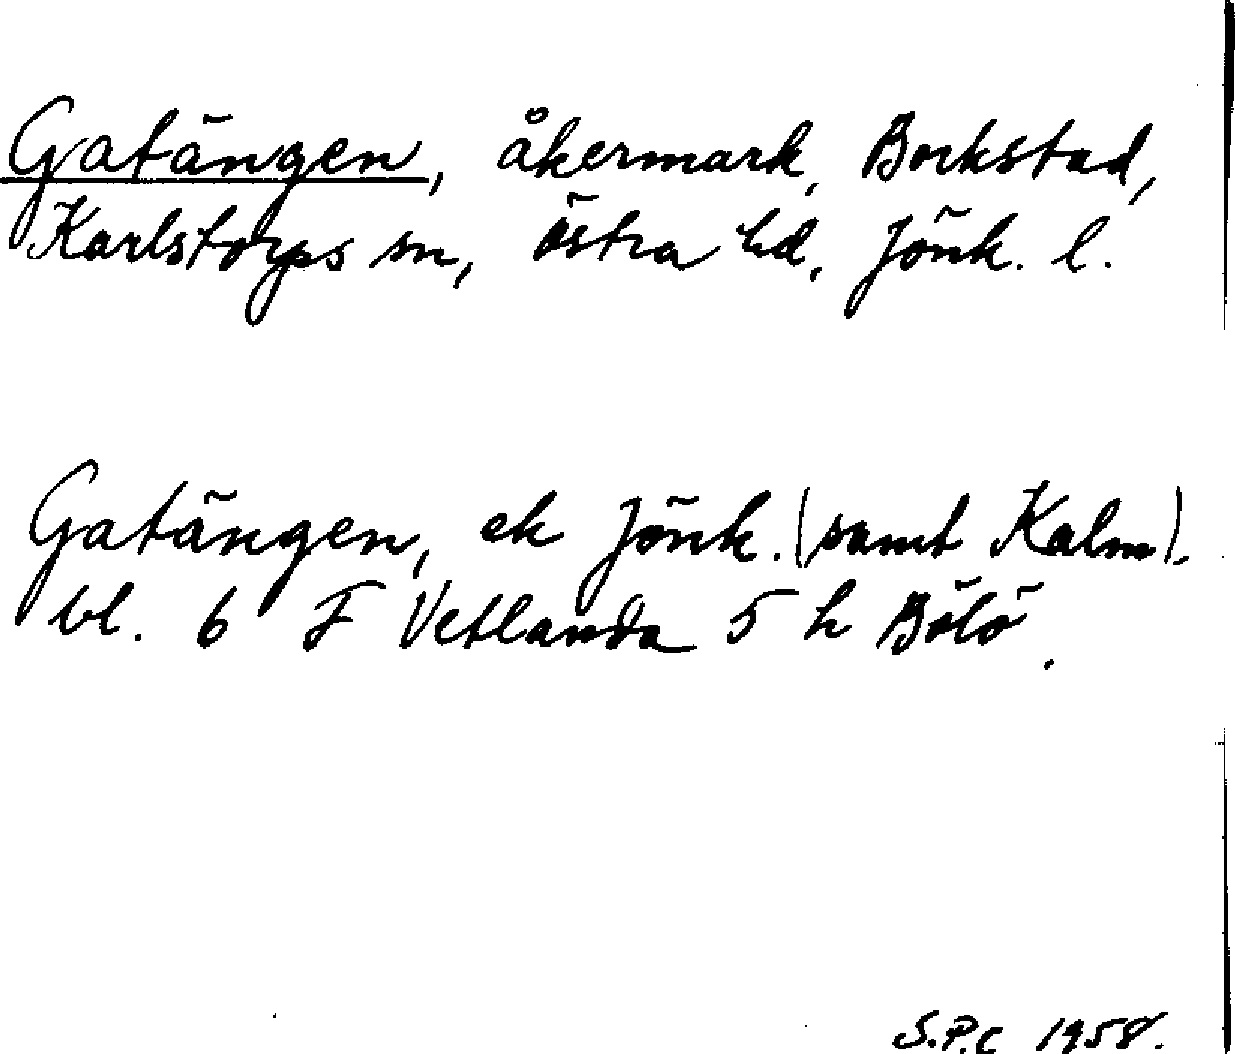 Gatängen, åkermark, Bockstad,
Karlstorps sn, östra hd, Jönk. l.
Gatängen, ek Jönk. (samt Kalm).
bl. 6 F Vetlanda 5 h Bölö.
S.P.C 1958.